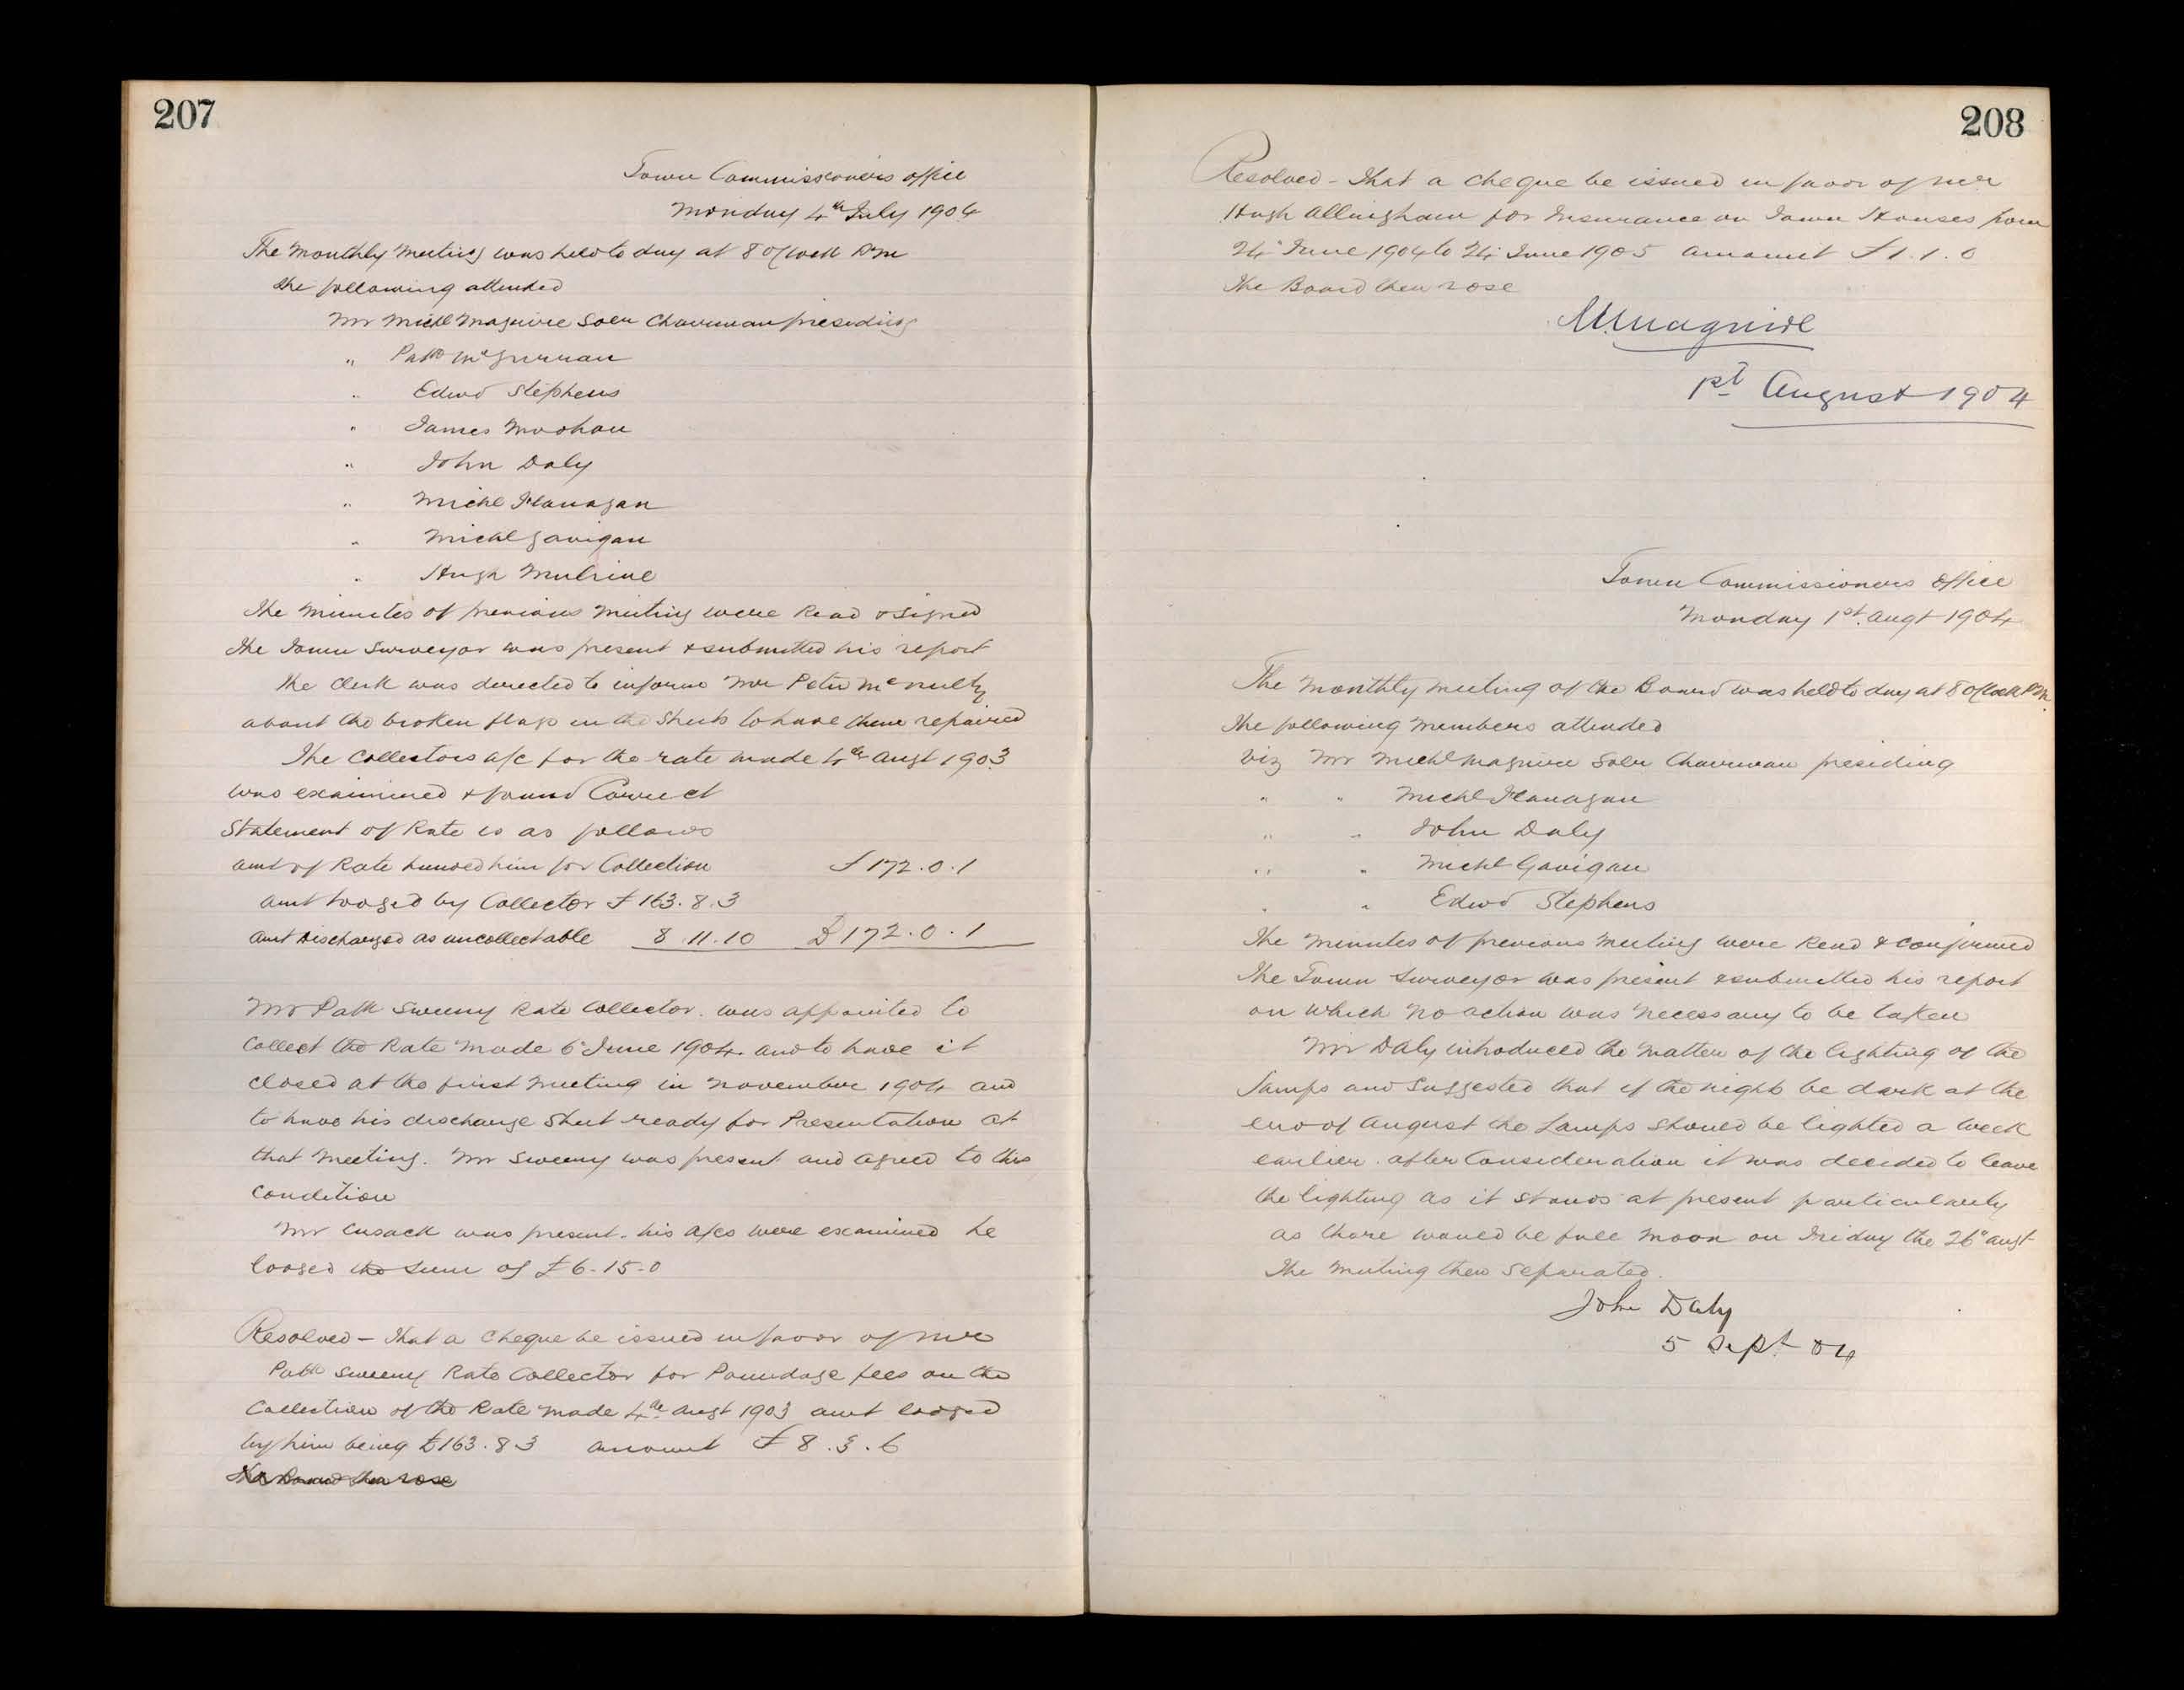 207
Town Commissioners office
Monday 4th July 1904
The Monthly Meeting was held to day at 8 O'Clock Pm
the following attended
Mr Michl Maguire Solr Chairman presiding
" Patk McGurran
" Edwd Stephens
" James Moohan
" John Daly
" Michl Flanagan
" Michl Gavigan
" Hugh Mulrine
The Minutes of previous Meeting were Read & signed
The Town Surveyor was present & submitted his report
The Clerk was directed to inform Mr Peter McNulty
about the broken flags in the Streets to have them repaired
The Collectors a/c for the rate made 4th Augt 1903
was examined & found Correct
Statement of Rate is as follows
amt of Rate handed him for Collection £172.0.1
amt lodged by Collector £163.8.3
amt Discharged as uncollectable 8.11.10 £172.0.1
Mr Patk Sweeny Rate Collector. was appointed to
Collect the Rate made 6th June 1904. and to have it
closed at the first Meeting in November 1904 and
to have his discharge Sheet ready for Presentation at
that Meeting. Mr Sweeny was present and agreed to this
Condition
Mr Cusack was present. his a/cs were examined he
lodged the sum of £6-15-0
Resolved - That a Cheque be issued in favor of Mr
Patk Sweeny Rate Collector for Poundage fees on the
Collection of the Rate made 4th Augt 1903 amt lodged
by him being £163.8 3 amount £8.3.6
The Board then rose
208
Resolved - That a Cheque be issued in favor of Mr
Hugh Allingham for Insurance on Town Houses from
24th June 1904 to 24th June 1905 amount £1.1.0
The Board then rose
M. Maguire
1st August 1904
Town Commissioners Office
Monday 1st. Augt 1904
The Monthly Meeting of the Board was held to day at 8 O'Clock P.M.
The following Members attended
Viz Mr Michl Maguire Solr Chairman presiding
" " Michl Flanagan
" " John Daly
" " Michl Gavigan
" " Edwd Stephens
The Minutes of previous Meeting were Read & confirmed
The Town Surveyor was present & submitted his report
on which no action was necessary to be taken
Mr Daly introduced the matter of the lighting of the
Lamps and Suggested that if the nights be dark at the
end of August the Lamps should be lighted a week
earlier. after Consideration it was decided to leave
the lighting as it stands at present particularly
as there would be full Moon on Friday the 26th augt
The Meeting then separated.
John Daly
5 Sept 04